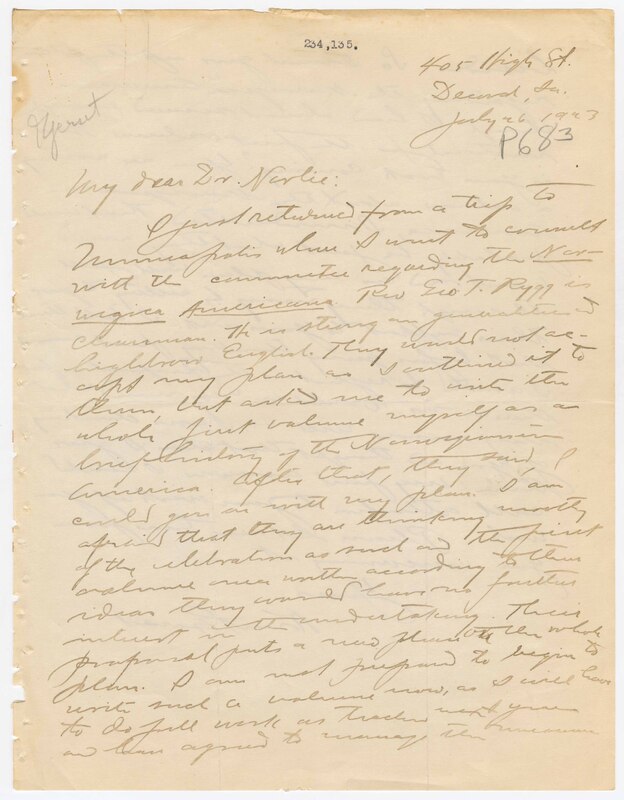 234,135.
405 High St.
Decorah, Ia.
July 26 1923
P683
Gjerset
My dear Dr. Norlie:
I just returned from a trip to
Minneapolis where I went to consult
with the committee regarding the Nor-
wegica Americana. Rev Geo. T. Rygg is
chairman. He is strong on generalities and
highbrow English. They would not ac-
cept my plan as I outlined it to
them, but asked me to write the
whole first volume myself as a
brief history of the Norwegians in
America. After that, they said, I
could go on with my plan. I am
afraid that they are thinking mostly
of the celebration as such and the first
volume once written according to their
ideas they would have no further
interest in the undertaking. Their
proposal puts a new phase on the whole
plan. I am not prepared to begin to
write such a volume now, as I will have
to do full work as teacher next year
and have agreed to manage the museum